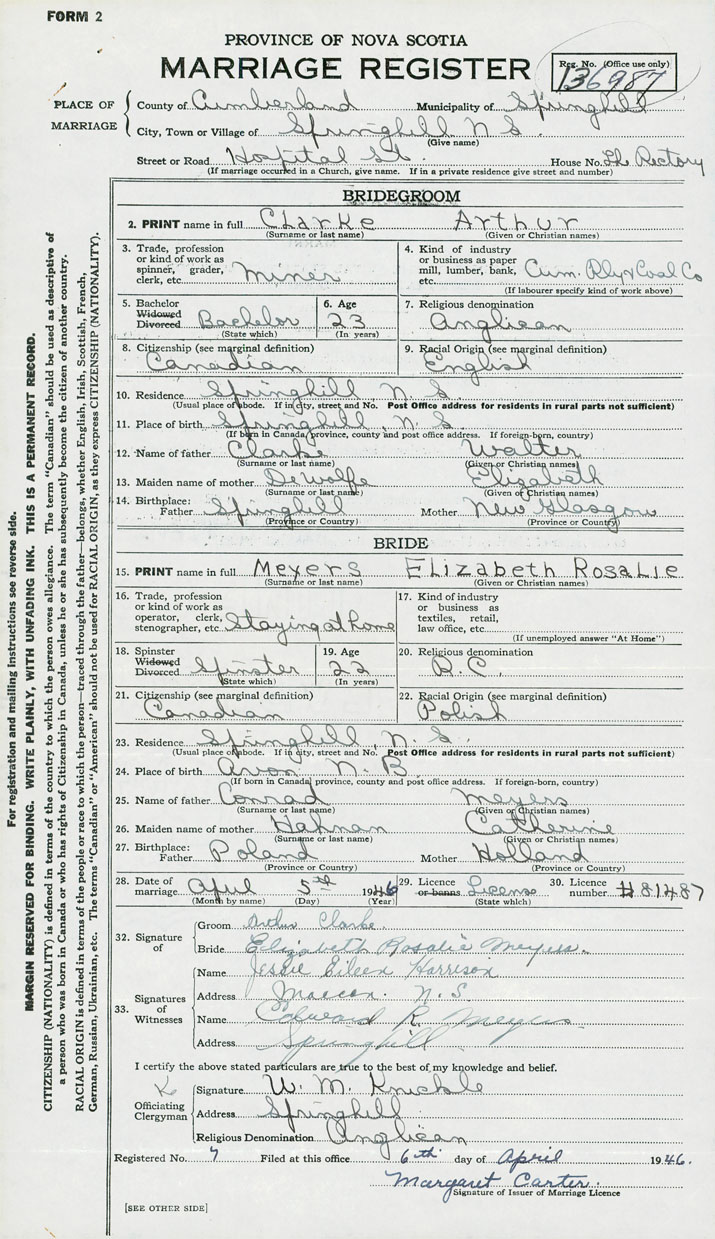 FORM 2
PROVINCE OF NOVA SCOTIA
MARRIAGE REGISTER
Reg. No. (Office use only)
136987
PLACE OF MARRIAGE
County of Cumberland Municipality of Springhill
City, Town or Village of Springhill N S.
(Give name)
Street or Road Hospital St. House No. The Rectory
(If marriage occurred in a Church, give name. If in a private residence give street and number)
BRIDEGROOM
2. PRINT name in full Clarke Arthur
(Surname or last name) (Given or Christian names)
3. Trade, profession or kind of work as spinner, grader, clerk, etc. Miner
4. Kind of industry or business as paper mill, lumber, bank, etc. Cum. Rly & Coal Co
(If labourer specify kind of work above)
5. Bachelor Widowed Divorced Bachelor
(State which)
6. Age 23
(In years)
7. Religious denomination
Anglican
8. Citizenship (see marginal definition)
Canadian
9. Racial Origin (see marginal definition)
English
10. Residence Springhill N. S.
(Usual place of abode. If in city, street and No. Post Office address for residents in rural parts not sufficient)
11. Place of birth Springhill, N. S.
(If born in Canada, province, county and post office address. If foreign-born, country)
12. Name of father Clarke Walter
(Surname or last name) (Given or Christian names)
13. Maiden name of mother DeWolfe Elizabeth
(Surname or last name) (Given or Christian names)
14. Birthplace: Father Springhill Mother New Glasgow
(Province or Country) (Province or Country)
BRIDE
15. PRINT name in full Meyers Elizabeth Rosalie
(Surname or last name) (Given or Christian names)
16. Trade, profession or kind of work as operator, clerk, stenographer, etc. Staying at home
17. Kind of industry or business as textiles, retail, law office, etc.
(If unemployed answer "At Home")
18. Spinster Widowed Divorced Spinster
(State which)
19. Age 22
(In years)
20. Religious denomination
R. C.
21. Citizenship (see marginal definition)
Canadian
22. Racial Origin (see marginal definition)
Polish
23. Residence Springhill, N. S.
(Usual place of abode. If in city, street and No. Post Office address for residents in rural parts not sufficient)
24. Place of birth Avon N. B.
(If born in Canada, province, county and post office address. If foreign-born, country)
25. Name of father Conrad Meyers
(Surname or last name) (Given or Christian names)
26. Maiden name of mother Hahnan Catherine
(Surname or last name) (Given or Christian names)
27. Birthplace: Father Poland Mother Holland
(Province or Country) (Province or Country)
28. Date of marriage April 5th 1946
(Month by name) (Day) (Year)
29. Licence or banns License
(State which)
30. Licence number #81487
32. Signature of
Groom Arthur Clarke.
Bride Elizabeth Rosalie Meyers.
33. Signatures of Witnesses
Name Jessie Eileen Harrison
Address Maccan. N. S.
Name Edward R. Meyers
Address Springhill
I certify the above stated particulars are true to the best of my knowledge and belief.
Officiating Clergyman
Signature W. M. Knickle
Address Springhill
Religious Denomination Anglican
Registered No. 7 Filed at this office 6th day of April 1946.
Margaret Carter.
Signature of Issuer of Marriage Licence
[SEE OTHER SIDE]
For registration and mailing instructions see reverse side.
MARGIN RESERVED FOR BINDING. WRITE PLAINLY, WITH UNFADING INK. THIS IS A PERMANENT RECORD.
CITIZENSHIP (NATIONALITY) is defined in terms of the country to which the person owes allegiance. The term "Canadian" should be used as descriptive of
a person who was born in Canada or who has rights of Citizenship in Canada, unless he or she has subsequently become the citizen of another country.
RACIAL ORIGIN is defined in terms of the people or race to which the person—traced through the father—belongs, whether English, Irish, Scottish, French,
German, Russian, Ukrainian, etc. The terms "Canadian" or "American" should not be used for RACIAL ORIGIN, as they express CITIZENSHIP (NATIONALITY).